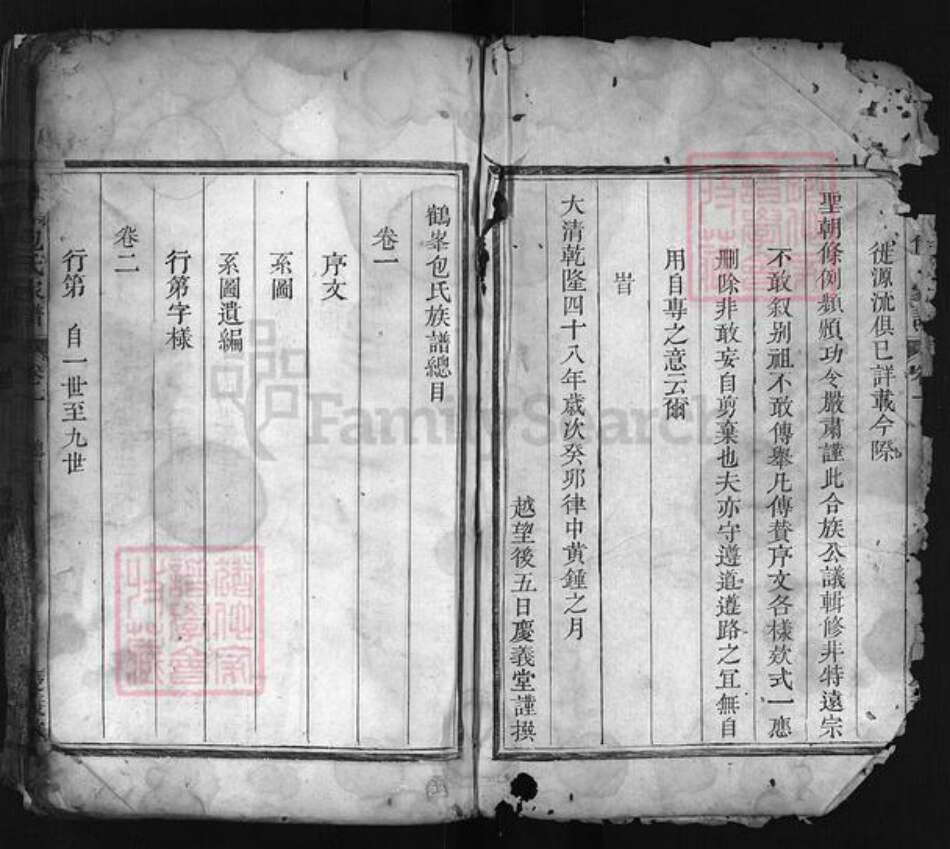 從源流俱已詳載今際
聖朝條例類頒功令嚴肅謹此合族公議輯修非特遠宗
不敢叙别祖不敢傳舉凡傳贊序文各樣欵式一應
刪除非敢妄自剪棄也夫亦守遵道遵路之冝無自
用自專之意云爾
旹
大清乾隆四十八年歲次癸卯律中黄鍾之月
越望後五日慶義堂謹撰
鶴峯包氏族譜總目
卷一
序文
系圖
系圖遺編
行第字樣
卷二
行第 自一世至九世
FamilySearch